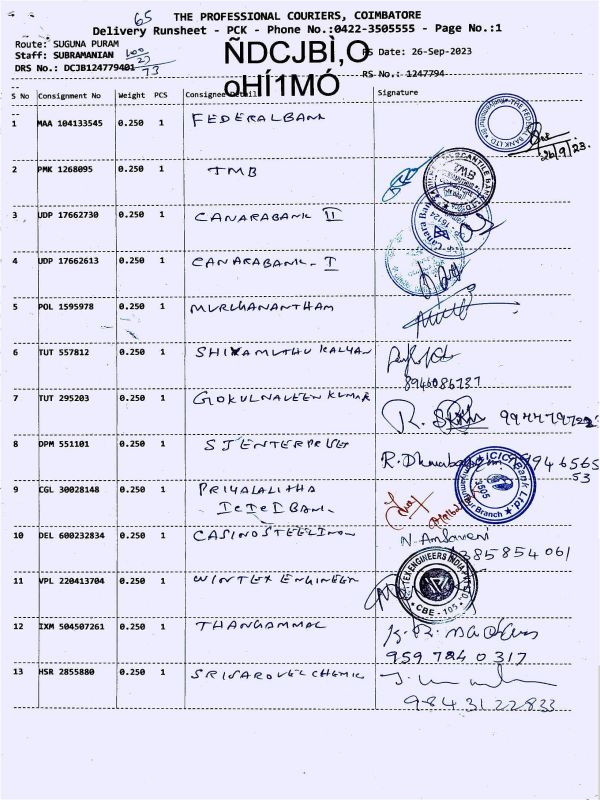 65 THE PROFESSIONAL COURIERS, COIMBATORE
Delivery Runsheet - PCK - Phone No.:0422-3505555 - Page No.:1
Route: SUGUNA PURAM
Staff: SUBRAMANIAN
DRS No.: DCJB124779401 73
ÑDCJBÌ,O
oHÍ1MÓ
RS Date: 26-Sep-2023
RS No.: 1247794
S No Consignment No Weight PCS Consignee Detail Signature
1 MAA 104133545 0.250 1 FEDERALBANK
26/9/23.
2 PMK 1268095 0.250 1 TMB
3 UDP 17662730 0.250 1 CANARABANK II
4 UDP 17662613 0.250 1 CANARABANK-I
5 POL 1595978 0.250 1 MURUHANANTHAM
6 TUT 557812 0.250 1 SHIVAMUTHU KALYAN
8946086737
7 TUT 295203 0.250 1 GOKULNAVEEN KUMAR
8 DPM 551101 0.250 1 SJ ENTERPRISES
53
9 CGL 30028148 0.250 1 PRIYALALITHA
ICICI BANK
ICICI Bank Ltd.
3505
10 DEL 600232834 0.250 1 CASINOSTEELINOX N. Amsaveni
9385854061
11 VPL 220413704 0.250 1 WINTEX ENGINEER
TEX ENGINEERS INDIA PVT LTD.
CBE - 105
12 IXM 504507261 0.250 1 THANGAMMAL
959 784 0 317
13 HSR 2855880 0.250 1 SRISAROVELCHEMIC
98431 22833